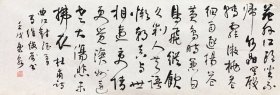 苑外江頭坐不
歸水精宮殿
轉霏微桃花細
逐楊花落
黃鳥時兼白
鳥飛縱飲
久判人共棄
懶朝真與世
相違吏情更
覺滄洲遠老
大徒傷未
拂衣 杜甫詩
曲江對酒